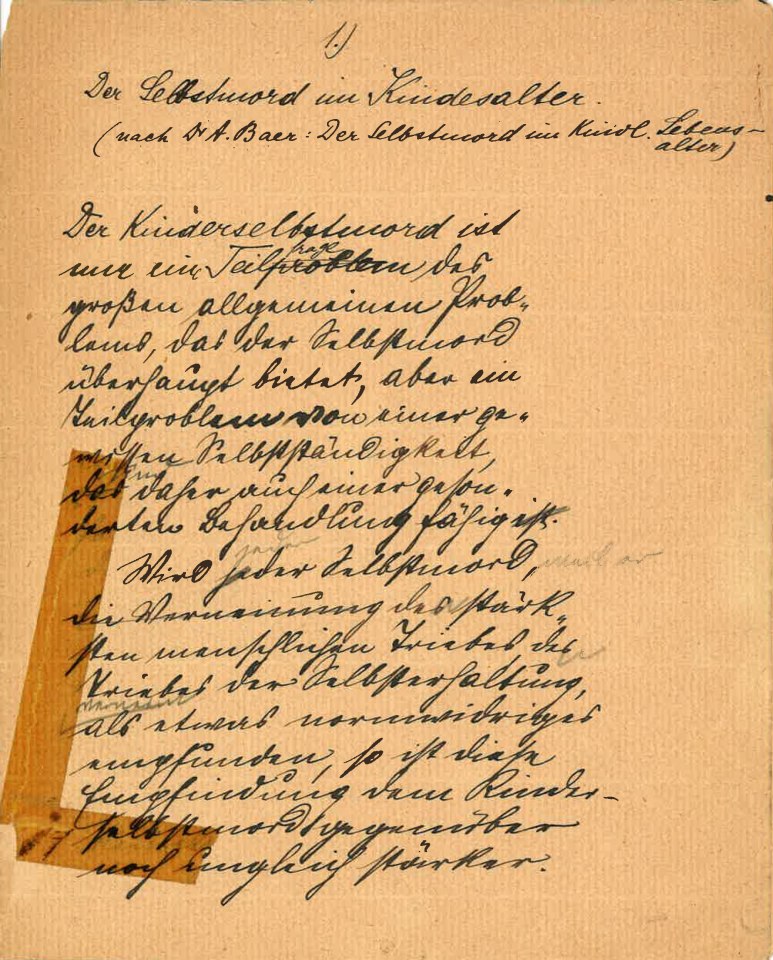 1.)
Der Selbstmord im Kindesalter.
(nach Dr A. Baer: Der Selbstmord im Kindl. Lebens-
alter)
Der Kinderselbstmord ist
frage
nur ein Teilproblem des
großen allgemeinen Prob-
lems, das der Selbstmord
überhaupt bietet, aber ein
Teilproblem von einer ge-
wissen Selbstständigkeit,
das daher auch einer geson-
derten Behandlung fähig ist.
jeder
Wird jeder Selbstmord, weil er
die Verneinung des stärk-
sten menschlichen Triebes, des
Triebes der Selbsterhaltung,
verneint
als etwas normwidriges
empfunden, so ist diese
Empfindung dem Kinder-
selbstmord gegenüber
noch ungleich stärker.